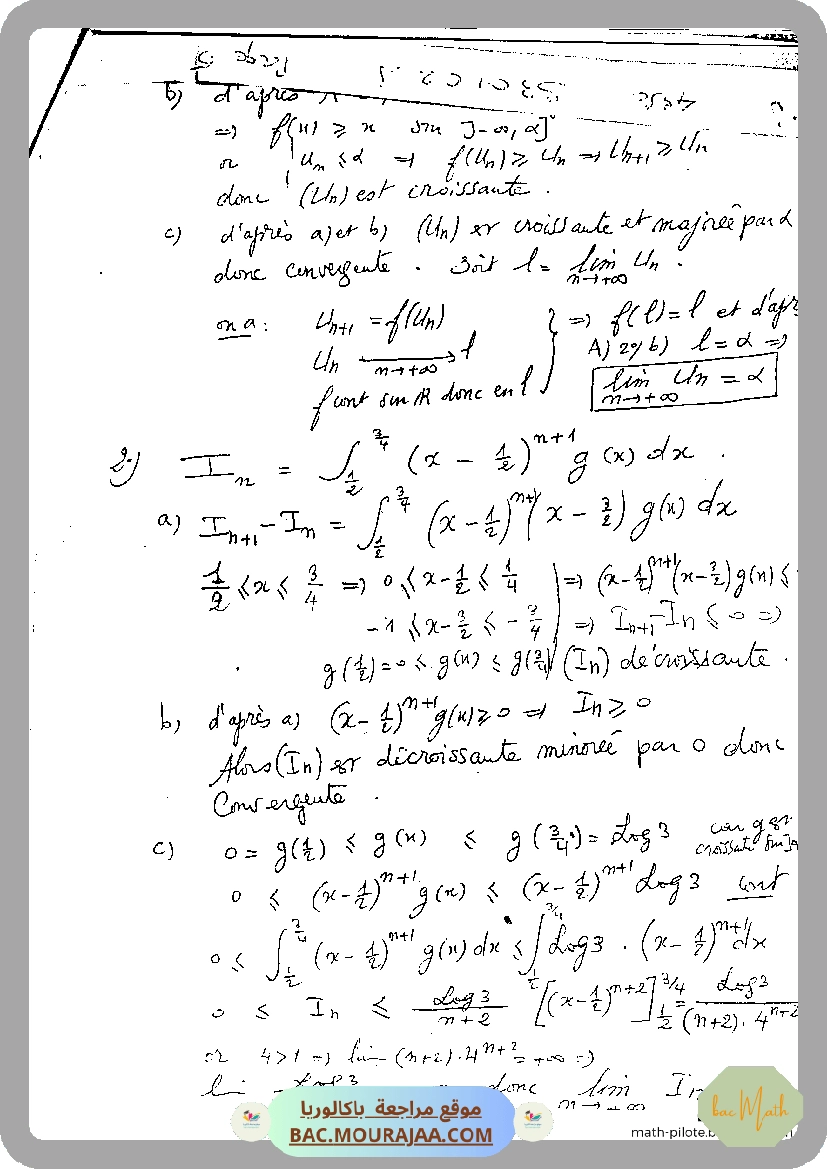 b) d'après
=> f(x) ≥ x sur ]-∞, α]
or Un ≤ α => f(Un) ≥ Un => Un+1 ≥ Un
donc (Un) est croissante.
c) d'après a) et b) (Un) est croissante et majorée par α
donc convergente. Soit l = lim Un.
n→+∞
on a: Un+1 = f(Un)
Un → l
n→+∞
f cont sur IR donc en l
=> f(l) = l et d'apr
A) 2°) b) l = α =>
lim Un = α
n→+∞
2°) In = ∫_{1/2}^{3/4} (x - 1/2)^{n+1} g(x) dx.
a) In+1 - In = ∫_{1/2}^{3/4} (x - 1/2)^{n+1} (x - 3/2) g(x) dx
1/2 ≤ x ≤ 3/4 => 0 ≤ x - 1/2 ≤ 1/4 => (x - 1/2)^{n+1} (x - 3/2) g(x) ≤
-1 ≤ x - 3/2 ≤ -3/4 => In+1 - In ≤ 0 =>
g(1/2) = 0 ≤ g(x) ≤ g(3/4) (In) décroissante.
b) d'après a) (x - 1/2)^{n+1} g(x) ≥ 0 => In ≥ 0
Alors (In) est décroissante minorée par 0 donc
Convergente.
c) 0 = g(1/2) ≤ g(x) ≤ g(3/4) = Log 3 car g est
croissante sur
0 ≤ (x - 1/2)^{n+1} g(x) ≤ (x - 1/2)^{n+1} Log 3 cont
0 ≤ ∫_{1/2}^{3/4} (x - 1/2)^{n+1} g(x) dx ≤ ∫_{1/2}^{3/4} Log 3 . (x - 1/2)^{n+1} dx
0 ≤ In ≤ Log 3 / n+2 [(x - 1/2)^{n+2}]_{1/2}^{3/4} = Log 3 / (n+2) . 4^{n+2}
or 4 > 1 => lim (n+2) . 4^{n+2} = +∞ =>
donc lim In
n→+∞
موقع مراجعة باكالوريا
BAC.MOURAJAA.COM
bac Math
math-pilote.b